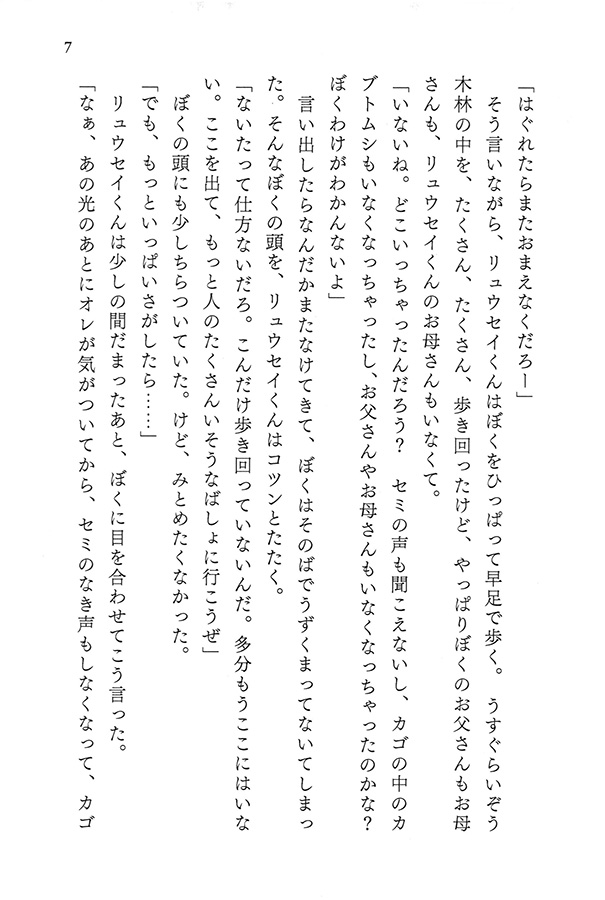 7
「はぐれたらまたおまえなくだろー」
そう言いながら、リュウセイくんはぼくをひっぱって早足で歩く。　うすぐらいぞう
木林の中を、たくさん、たくさん、歩き回ったけど、やっぱりぼくのお父さんもお母
さんも、リュウセイくんのお母さんもいなくて。
「いないね。どこいっちゃったんだろう？　セミの声も聞こえないし、カゴの中のカ
ブトムシもいなくなっちゃったし、お父さんやお母さんもいなくなっちゃったのかな？
ぼくわけがわかんないよ」
言い出したらなんだかまたなけてきて、ぼくはそのばでうずくまってないてしまっ
た。そんなぼくの頭を、リュウセイくんはコツンとたたく。
「ないたって仕方ないだろ。こんだけ歩き回っていないんだ。多分もうここにはいな
い。ここを出て、もっと人のたくさんいそうなばしょに行こうぜ」
ぼくの頭にも少しちらついていた。けど、みとめたくなかった。
「でも、もっといっぱいさがしたら……」
リュウセイくんは少しの間だまったあと、ぼくに目を合わせてこう言った。
「なぁ、あの光のあとにオレが気がついてから、セミのなき声もしなくなって、カゴ